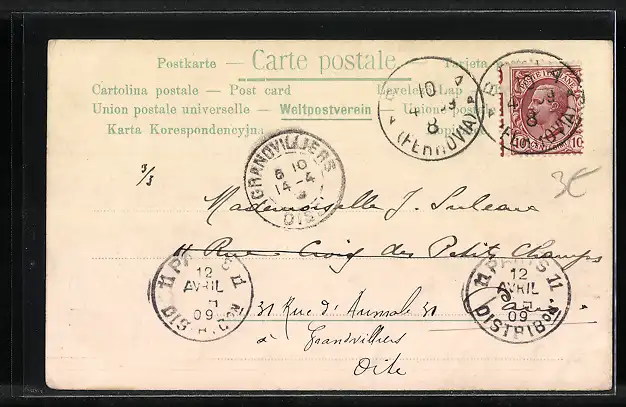 Postkarte – Carte postale – Tarjeta
Cartolina postale – Post card Levelező-Lap
Union postale universelle – Weltpostverein – Unione postale
Karta Korespondencyjna
10
4 09
8
(FERROVIA)
8
(FERROVIA)
POSTE ITALIANE
10 10
GRANDVILLIERS
6 10
14-4
OISE
3/3
3€
Mademoiselle J. Suleau
11 Rue Croix des Petits Champs
11 PARIS 11
12
AVRIL
09
DISTRIBon
11 PARIS 11
12
AVRIL
09
DISTRIBon
31 Rue d'Aumale 31
à Grandvilliers
Oise